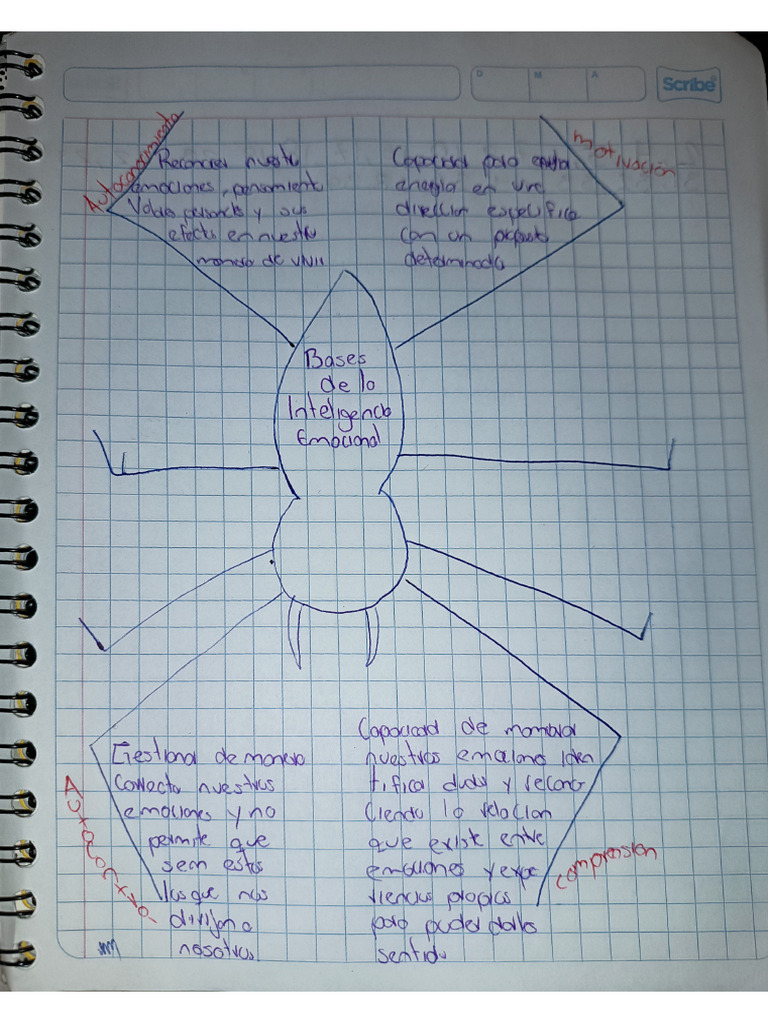 D M A
Scribe
Autoconocimiento
Reconocer nuestr
emociones, pensamient
Valores personales y sus
efectos en nuestra
manera de vivir
motivación
Capacidad para
energia en una
dirección especifica
con un proposito
determinado
Bases
de la
Inteligencia
Emocional
Autocontrol
Gestionar de manera
correcta nuestras
emociones y no
permite que
sean estas
las que nos
dirijan a
nosotros
comprension
Capacidad de nombrar
nuestras emociones iden
tifica das y recono
ciendo la relacion
que existe entre
emociones y expe
riencias propias
para poder darles
sentido